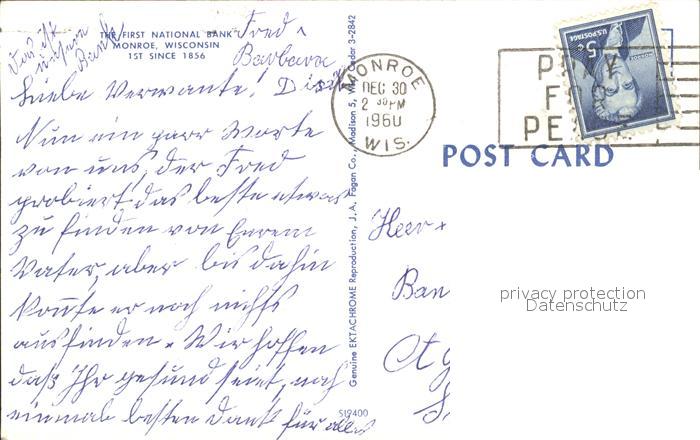 Das ist
unsere
Bank!
THE FIRST NATIONAL BANK
MONROE, WISCONSIN
1ST SINCE 1856
Fred &
Barbara
Liebe Verwante!
Nun ein paar Worte
von uns, der Fred
probiert das beste etwas
zu finden von Eurem
Vater, aber bis dahin
konnte er noch nichts
ausfinden. Wir hoffen
daß Ihr gesund seit, noch
einmal besten Dank für alles
Genuine EKTACHROME Reproduction, J. A. Fagan Co., Madison 5, Wis. 3-2842
S19400
MONROE
DEC 30
2 30 PM
1960
WIS.
PRAY
FOR
PEACE
U.S. POSTAGE
5¢
MONROE
POST CARD
Herr
Ban
privacy protection
Datenschutz